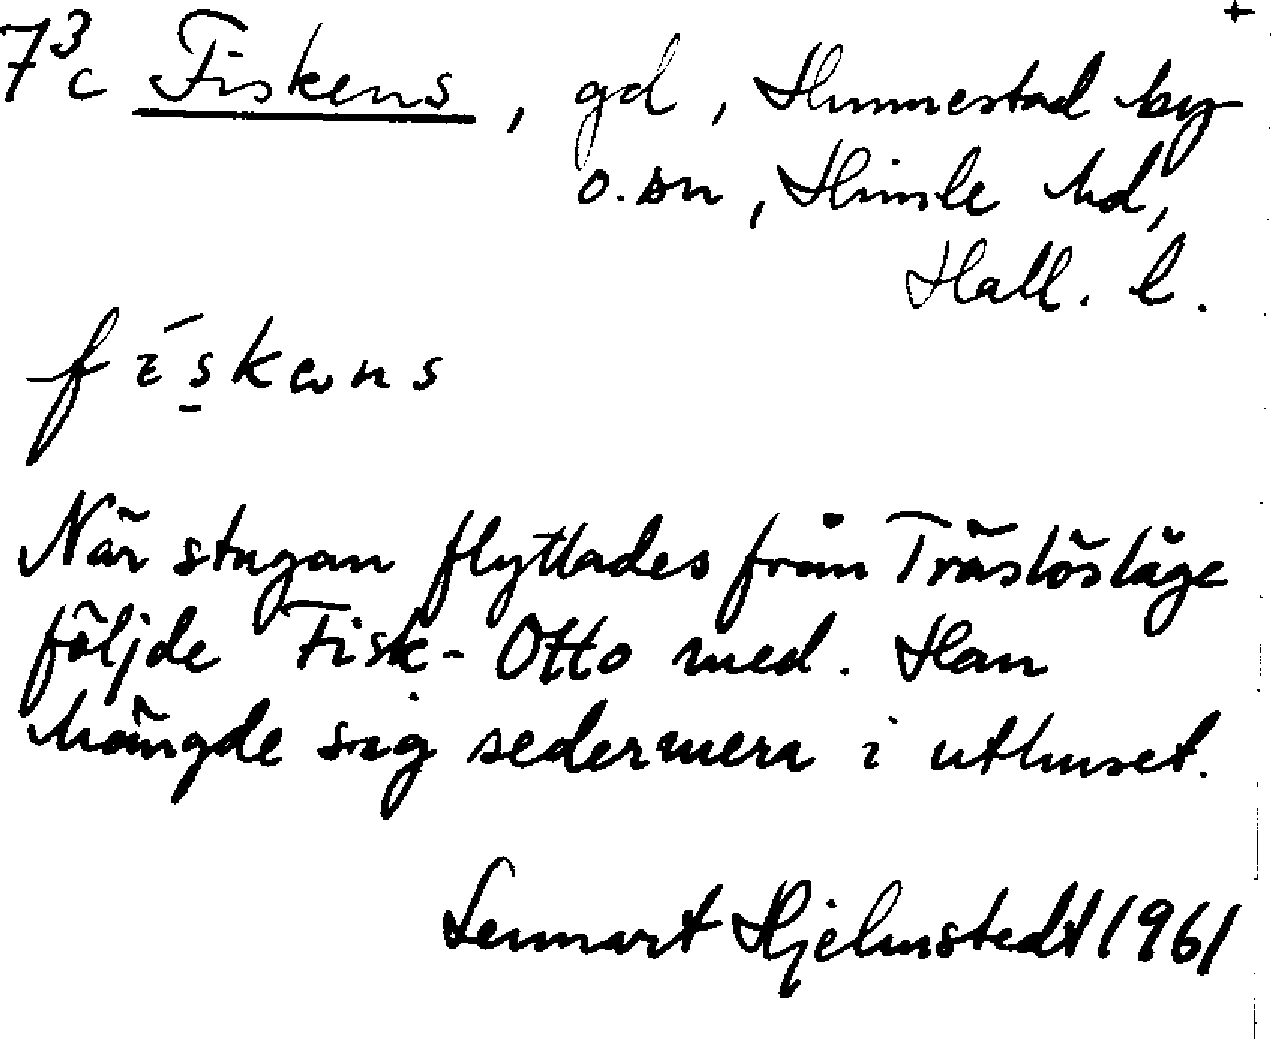 7³c Fiskens, gd, Hunnestad by +
o. sn, Himle hd,
Hall. l.
fískens
När stugan flyttades från Träslövsläge
följde Fisk-Otto med. Han
hängde sig sedermera i uthuset.
Lennart Hjelmstedt 1961